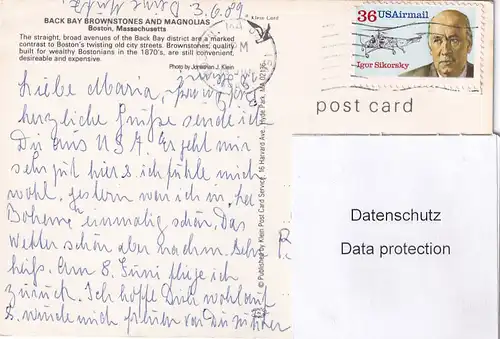 BACK BAY BROWNSTONES AND MAGNOLIAS
Boston, Massachusetts
The straight, broad avenues of the Back Bay district are a marked
contrast to Boston's twisting old city streets. Brownstones, quality
built for wealthy Bostonians in the 1870's, are still convenient,
desireable and expensive.
Photo by Jonathan J. Klein
3.6.89
Klein Card
Liebe Maria,
herzliche Grüße sende ich
Dir aus USA. Es geht mir
sehr gut hier u. ich fühle mich
wohl. Gestern war ich in "La
Boheme" einmalig schön. Das
Wetter schön aber nachm. sehr
heiß. Am 8. Juni fliege ich
zurück. Ich hoffe Dir wohlauf
u. würde mich freuen von Dir zu hören
© Published by Klein Post Card Service, 16 Harvard Ave., Hyde Park, MA 02136
36 USAirmail
Igor Sikorsky
post card
Datenschutz
Data protection